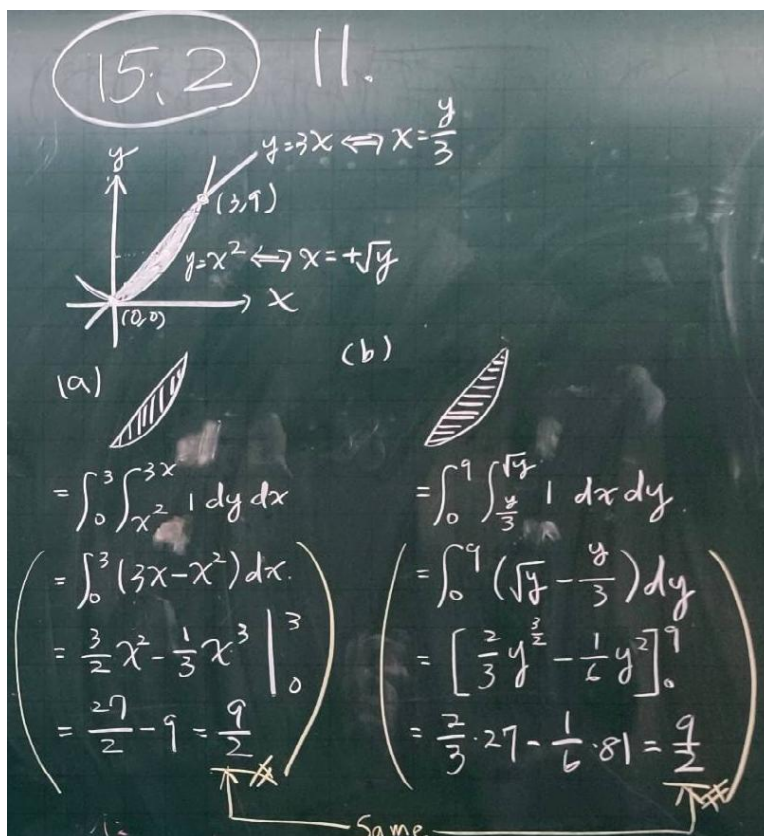 15.2 11.
y
y=3x ⟺ x=y/3
(3,9)
y=x² ⟺ x=+√y
x
(0,0)
(a)
=∫₀³∫_{x²}^{3x} 1 dy dx
=∫₀³(3x-x²)dx.
=3/2 x²-1/3 x³|₀³
=27/2-9=9/2
(b)
=∫₀⁹∫_{y/3}^{√y} 1 dx dy.
=∫₀⁹(√y-y/3)dy
=[2/3 y^{3/2}-1/6 y²]₀⁹
=2/3·27-1/6·81=9/2
Same